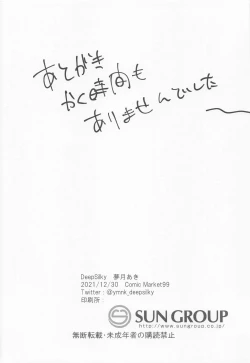 あとがき
かく時間も
ありませんでした
〜
DeepSilky 夢月あき
2021/12/30 Comic Market99
Twitter : @ymnk_deepsilky
印刷所
SUN GROUP
http://www.sungroup.co.jp/
無断転載・未成年者の購読禁止